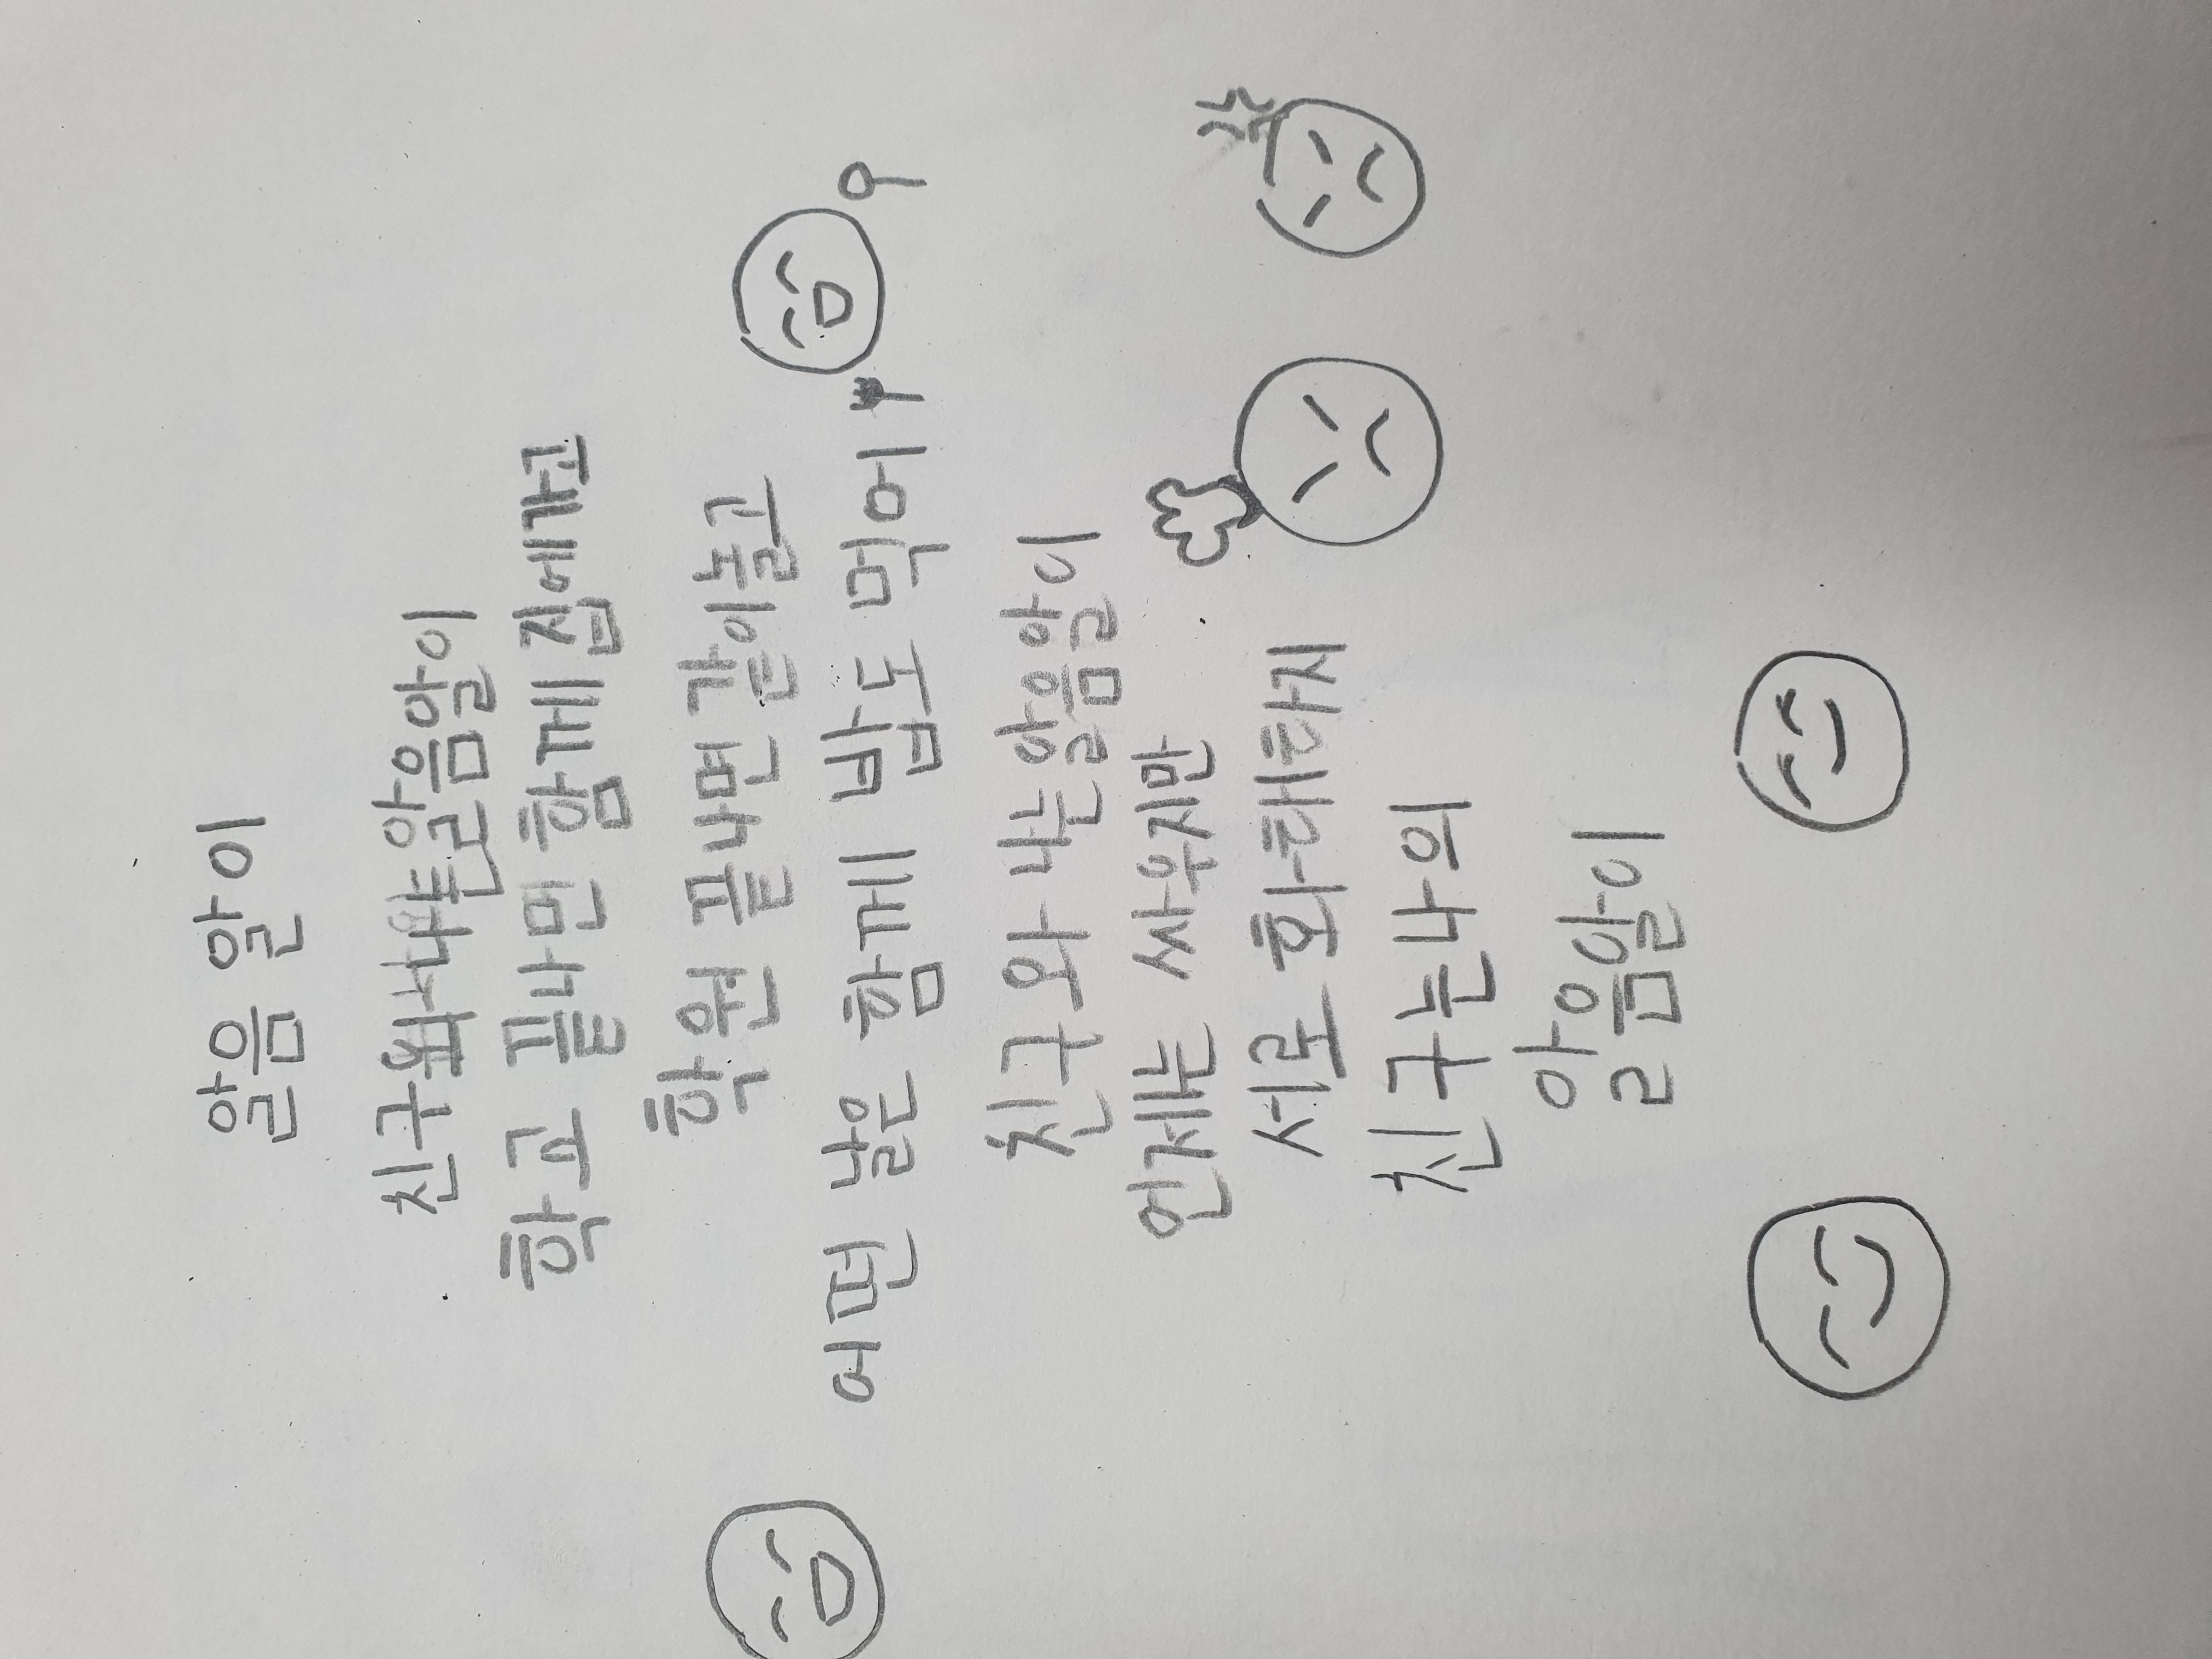 알음 알이
친구와나는알음알이
학교 끝나면 함께 집에가고
학원 끝나면 같이놀고
어떤 날은 함께 밥도 먹어
친구와 나는알음알이
언제는 싸우지만
서로 화해하지
친구는나의
알음알이